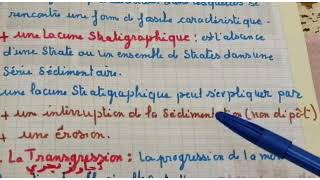 rencontre une form de fossile caractéristique.
+ une lacune Stratigraphique : est l'absence
d'une Strate ou un ensemble de Strates dans une
Série Sédimentaire.
une lacune Stratigraphique peut s'expliquer par
+ un interruption de la Sédimentation (non dépôt)
+ une érosion.
. La Transgression : La progression de la mer
تجاوز بحري